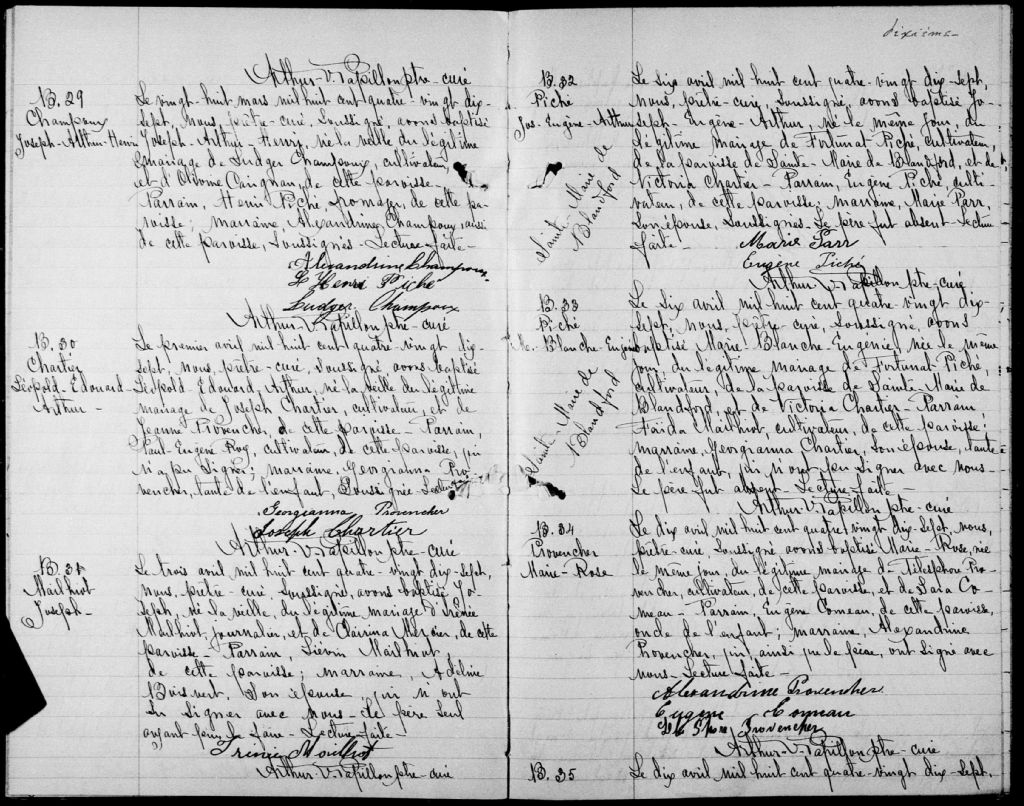 Arthur V. Papillon ptre-curé
B. 29
Champoux
Joseph-Arthur-Henri
Le vingt-huit mars mil huit cent quatre-vingt dix-
sept, nous, prêtre-curé, soussigné, avons baptisé
Joseph-Arthur-Henry, né la veille du légitime
mariage de Ludger Champoux, cultivateur,
et d'Olivine Caignan, de cette paroisse-
Parrain, Henri Piché, fromager, de cette pa-
roisse; marraine, Alexandrine Champoux, aussi
de cette paroisse, soussignés- Lecture faite-
Alexandrine Champoux
Henri Piché
Ludger Champoux
Arthur V. Papillon ptre-curé
B. 30
Chartier
Léopold-Edouard-
Arthur-
Le premier avril mil huit cent quatre-vingt dix-
sept, nous, prêtre-curé, soussigné, avons baptisé
Léopold Edouard Arthur, né la veille du légitime
mariage de Joseph Chartier, cultivateur, et de
Jeanne Provencher, de cette paroisse- Parrain,
Paul-Eugène Roy, cultivateur, de cette paroisse, qui
n'a pu signer; marraine, Georgianna Pro-
vencher, tante de l'enfant, soussignée-
Georgeanna Provencher
Joseph Chartier
Arthur V. Papillon ptre-curé
B. 31
Mailhiot
Joseph-
Le trois avril mil huit cent quatre-vingt dix-sept,
nous, prêtre-curé, soussigné, avons baptisé Jo-
seph, né la veille du légitime mariage d'Irénée
Mailhiot, journalier, et de Clairina Mercier, de cette
paroisse- Parrain, Liévin Mailhiot,
de cette paroisse; marraine, Adeline
Boisvert, son épouse, qui n'ont
su signer avec nous- Le père seul
ayant pu le faire- Lecture faite-
Irénée Mailhiot
Arthur V. Papillon ptre-curé
dixième-
B. 32
Piché
Jos-Eugène-Arthur
Sainte-Marie de
Blandford
Le six avril mil huit cent quatre-vingt dix-sept,
nous, prêtre-curé, soussigné, avons baptisé Jo-
seph-Eugène-Arthur, né le même jour, du
légitime mariage de Fortunat Piché, cultivateur,
de la paroisse de Sainte-Marie de Blandford, et de
Victoria Chartier- Parrain, Eugène Piché, culti-
vateur, de cette paroisse; marraine, Marie Parr,
son épouse, soussignés- Le père fut absent- Lecture
faite-
Marie Parr
Eugène Piché
Arthur V. Papillon ptre-curé
B. 33
Piché
M.-Blanche-Eugénie
Sainte-Marie de
Blandford
Le six avril mil huit cent quatre-vingt dix-
sept, nous, prêtre-curé, soussigné, avons
baptisé Marie-Blanche-Eugénie, née le même
jour, du légitime mariage de Fortunat Piché,
cultivateur, de la paroisse de Sainte-Marie de
Blandford, et de Victoria Chartier- Parrain,
Mailhiot, cultivateur, de cette paroisse;
marraine, Georgianna Chartier, son épouse, tante
de l'enfant, qui n'ont pu signer avec nous-
Le père fut absent- Lecture faite-
Arthur V. Papillon ptre-curé
B. 34
Provencher
Marie-Rose
Le dix avril mil huit cent quatre-vingt dix-sept, nous,
prêtre-curé, soussigné avons baptisé Marie-Rose, née
le même jour, du légitime mariage d'Télesphore Pro-
vencher, cultivateur, de cette paroisse, et de Saïa Co-
meau- Parrain, Eugène Comeau, de cette paroisse,
oncle de l'enfant; marraine, Alexandrine
Provencher, qui ainsi que le père, ont signé avec
nous- Lecture faite-
Alexandrine Provencher
Eugene Comeau
Provencher
Arthur V. Papillon ptre-curé
B. 35
Le dix avril mil huit cent quatre-vingt dix-sept,